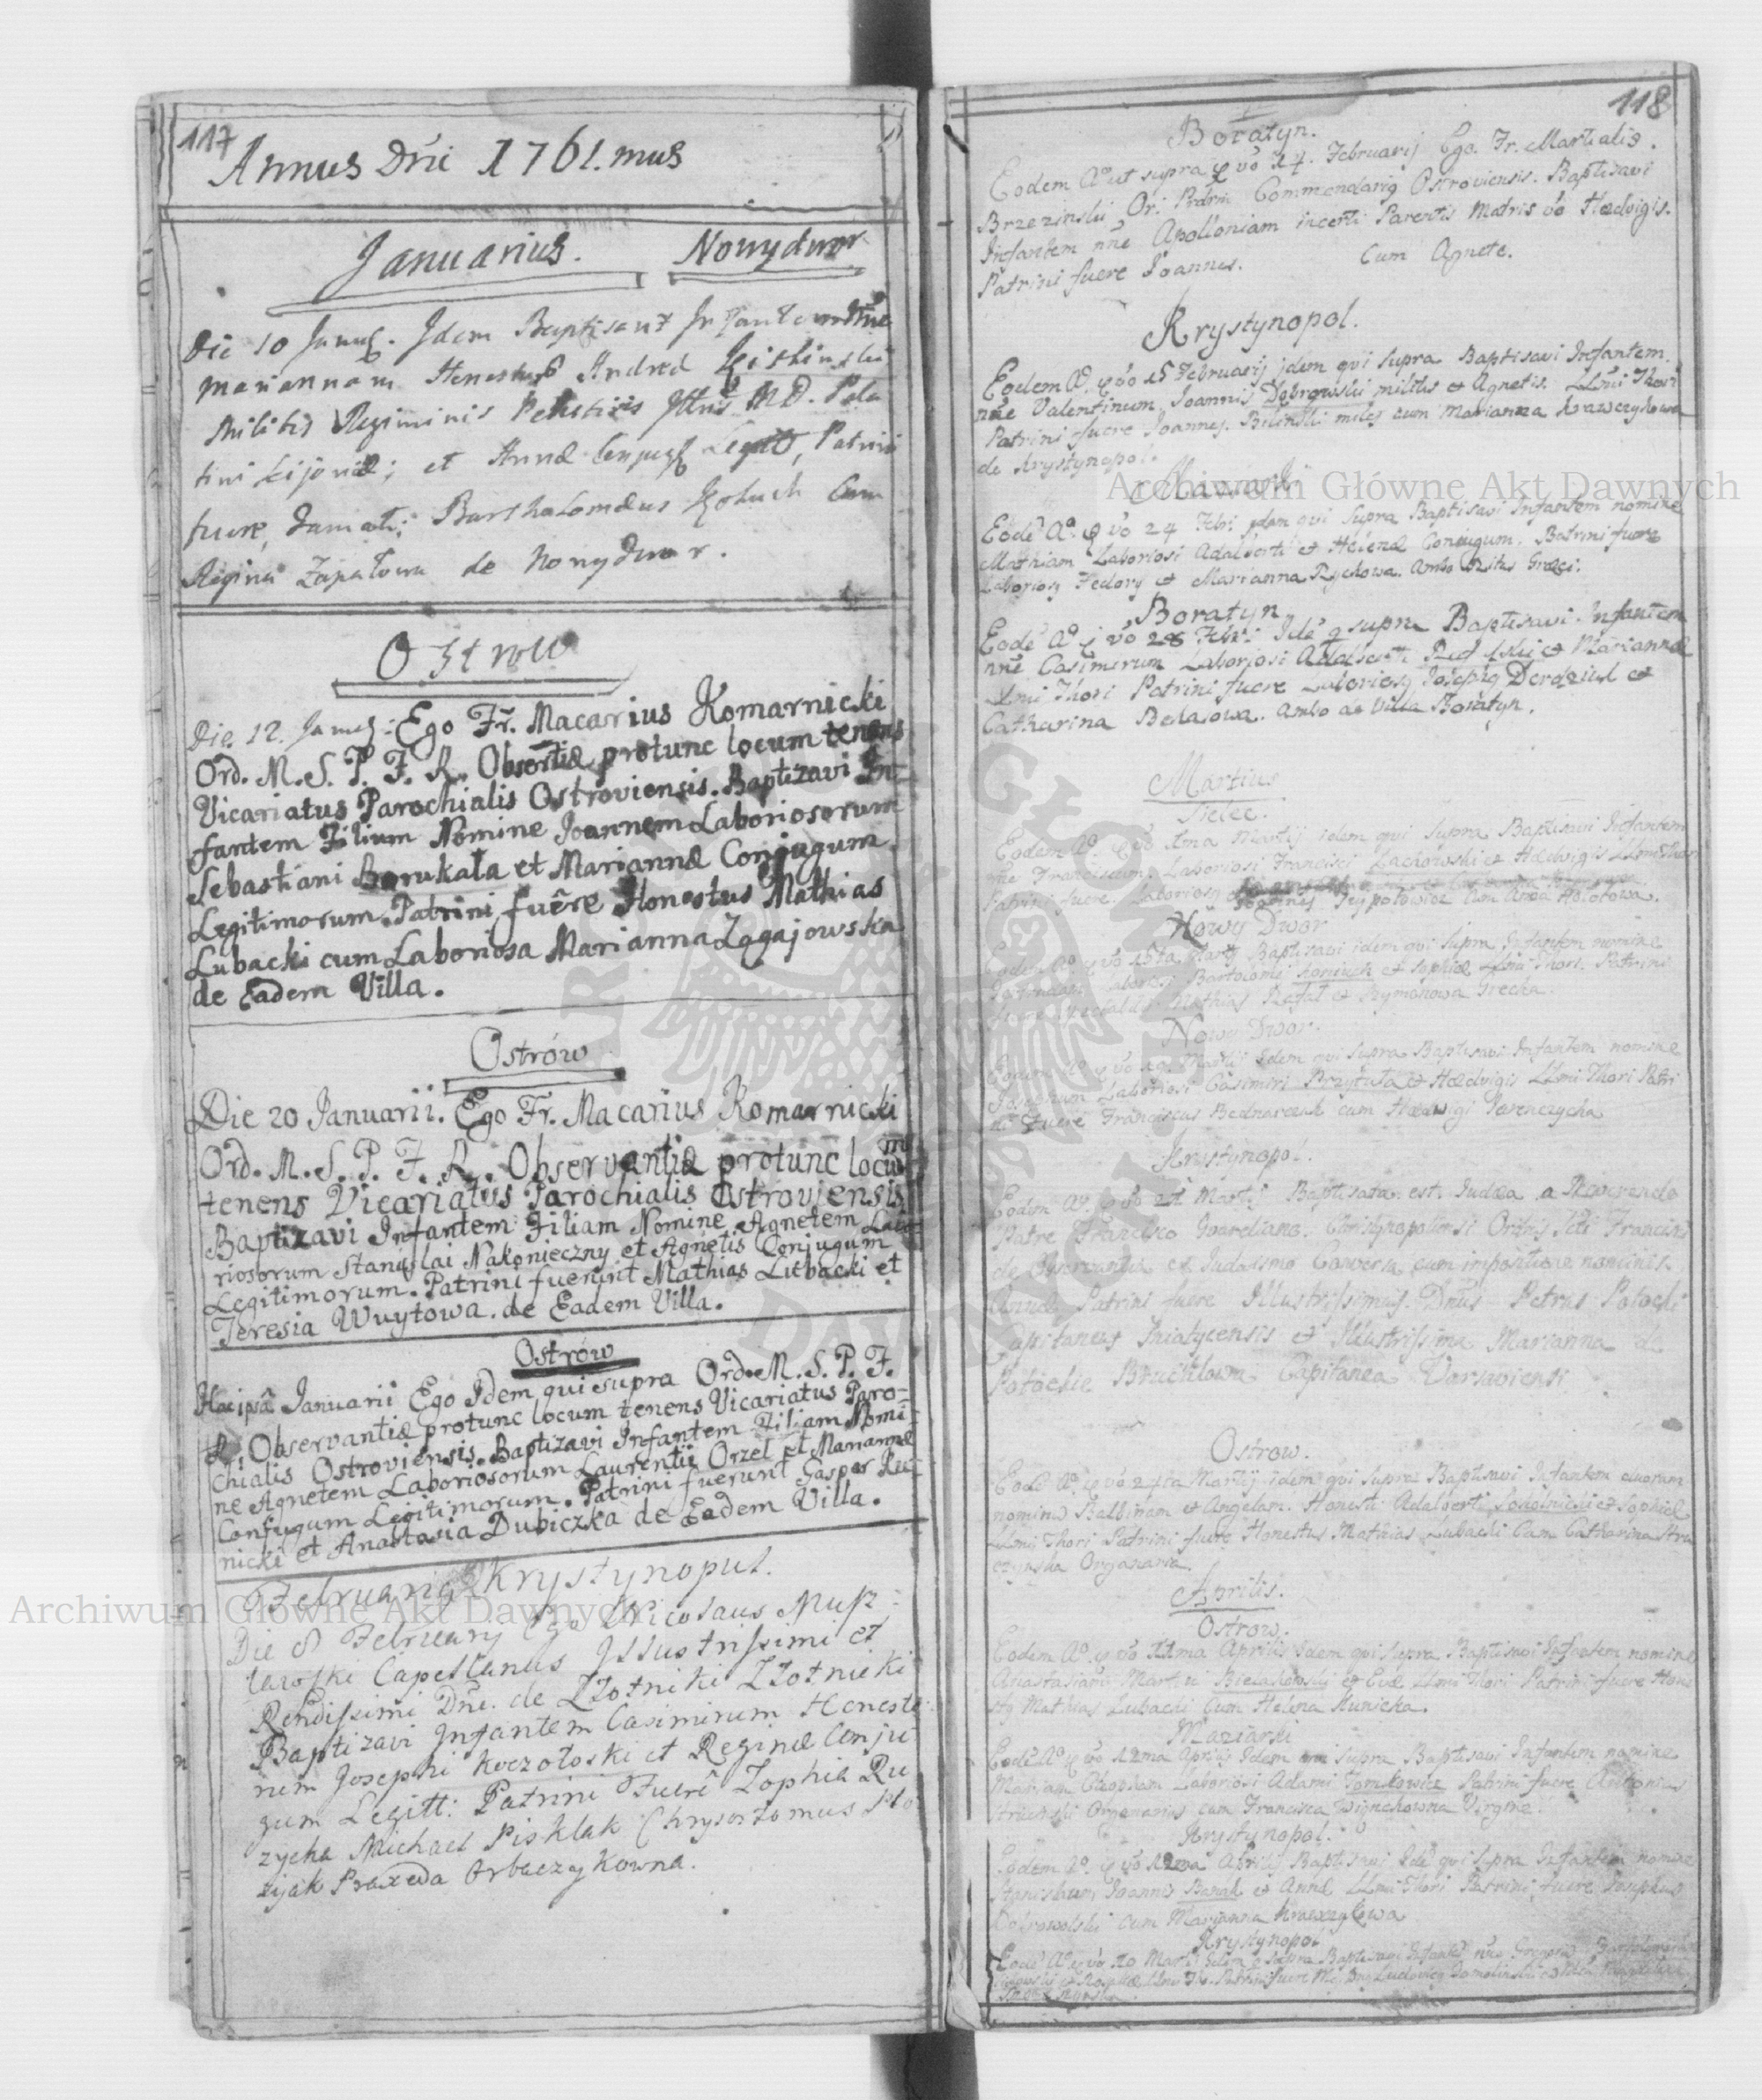 117
Annus Dńi 1761.mus
Januarius. Nowydwor
Die 10 Januarij. Idem Baptisavit Infantem nñe
Mariannam Honestorum Andreæ
Militis Regiminis Pedestris Illus. M.D. Pala
tini Kijoviæ; et Annæ Conjugum Legit, Patrini
fuere, Famati; Bartholomæus Kołuch Cum
Regina Zapałowa de Nowydwor.
Ostrow
Die 12. Januarij: Ego Fr. Macarius Komarnicki
Ord. M. S. P. F. R. Observantiæ protunc locum tenens
Vicariatus Parochialis Ostroviensis. Baptizavi In-
fantem Filium Nomine Joannem Laboriosorum
Sebastiani Borukała et Mariannæ Conjugum
Legitimorum. Patrini fuêre Honestus Mathias
Lubacki cum Laboriosa Marianna Zagajowska
de Eadem Villa.
Ostrów
Die 20 Januarii. Ego Fr. Macarius Komarnicki
Ord. M. S. P. F. R. Observantiæ protunc locum
tenens Vicariatus Parochialis Ostroviensis
Baptizavi Infantem Filiam Nomine Agnetem Labo-
riosorum Stanislai Nakonieczny et Agnetis Conjugum
Legitimorum. Patrini fuerunt Mathias Lubacki et
Teresia Wuytowa. de Eadem Villa.
Ostrów
Hac ipsâ Januarii Ego Idem qui supra Ord. M. S. P. F.
R. Observantiæ protunc locum tenens Vicariatus Paro-
chialis Ostroviensis. Baptizavi Infantem Filiam Nomi-
ne Agnetem Laboriosorum Laurentii Orzeł et Mariannæ
Conjugum Legitimorum. Patrini fuerunt Gasper Ku-
nicki et Anastasia Dubiczka de Eadem Villa.
Februarius Krystynopol.
Die 8 February Ego Nicolaus
Capellanus Illustrissimi et
Rendissimi Dñi. de Złotniki Złotnicki
Baptizavi Infantem Casimirum Honesto
rum Josephi Koczołoski et Reginæ Conju
gum Legitt: Patrini Fuerê Zophia Ru
zycka Michael Pisklak Chrysostomus Flo
rijak Praxeda Orbaczykowna.
118
Boratyn.
Eodem Aº ut supra vo 14. Februarij Ego. Fr. Martialis.
Brzezinski Or: Prdrm Commendarig Ostroviensis. Baptisavi
Infantem nñe Apolloniam incerti Parentis Matris vo Hedvigis.
Patrini fuere Joannes. Cum Agnete.
Krystynopol.
Eodem Aº. vo 15 Februarij idem qui supra Baptisavi Infantem.
nñe Valentinum Joannis Dąbrowski militis et Agnetis. Llmi Thori
Patrini fuere Joannes. Bilinski miles cum Marianna Krawczykowa
de Krystynopol.
Maziarki
Eodẽ Aº. vo 24 Febri idem qui supra Baptisavi Infantem nomine
Mathiam Laboriosi Adalberti et Helenæ Coniugum. Patrini fuere
Laboriosg Fedory et Marianna Rychowa. Ambo Ritus Græci.
Boratyn
Eodẽ Aº vo 28 Febri: Idẽ q supra Baptisavi Infantem
nñe Casimirum Laboriosi Adalberti et Mariannæ
Llmi Thori Patrini fuere Laboriosg Josephg Derdziuk et
Catharina Belzowa. Ambo de Villa Boratyn.
Martius
Sielec.
Eodem Aº vo 1ma Martij idem qui supra Baptisavi Infantem
nñe Franciscum Laboriosi Francisci Lachowski et Hedvigis Llmi Thori
Patrini fuere. Laboriosg Cum Anna Hołotowa.
Nowy Dwor
Eodem Aº vo 15ta Martij Baptisavi idem qui supra Infantem nomine
Laboriosi Bartolomei et Sophiæ Llmi Thori. Patrini
Mathias Rafał et Szymonowa Grecka.
Nowy Dwor.
Eodem Aº vo 19. Martij Idem qui supra Baptisavi Infantem nomine
Josephum Laboriosi Casimiri Przytuła et Hedvigis Llmi Thori Patri
ni fuere Franciscus Bednarczuk cum Hedvigi
Krystynopol.
Eodem Aº. vo 21 Martij Baptisata est Iudæa a Reverendo
Patre Francisco Guardiano Christynopolensi Ordinis Scti Francisci
de Observantia ex Judaismo Conversa cum impositione nominis.
Annæ Patrini fuere Illustrissimus. Dñus Petrus Potocki
Capitaneus Sniatycensis et Illustrissima Marianna de
Potockie Bruchlowa Capitanea Varsaviensi
Ostrow.
Eodẽ Aº vo 24ta Martij idem qui supra Baptisavi Infantem duorum
nominũ Balbinam et Angelam. Honesti Adalberti Sokolnicki et Sophiæ
Llmi Thori Patrini fuere Honestus Mathias Lubacki Cum Catharina Stru
czynska Organaria.
Aprilis.
Ostrow.
Eodem Aº. vo 11ma Aprilis Idem qui supra Baptisavi Infantem nomine
Anastasiam Martini et Evæ Llmi Thori Patrini fuere Hone
stg Mathias Lubacki Cum Helena Kunicka.
Maziarki
Eodẽ Aº vo 12ma Aprilis Idem qui supra Baptisavi Infantem nomine
Mariam Cleopham Laboriosi Adami Tomkowicz Patrini fuere Antonius
Organarius cum Francisca Virgine.
Krystynopol.
Eodem Aº. vo 12ma Aprilis Baptisavi Idẽ qui supra Infantem nomine
Stanislaum Joannis Banak et Annæ Llmi Thori Patrini fuere Josephus
Dobrowolski cum Marianna Krawczykowa
Krystynopol
Eodẽ Aº vo 20 Idem q supra Baptisavi
Archiwum Główne Akt Dawnych
Archiwum Główne Akt Dawnych
ARCHIWUM GŁÓWNE AKT DAWNYCH